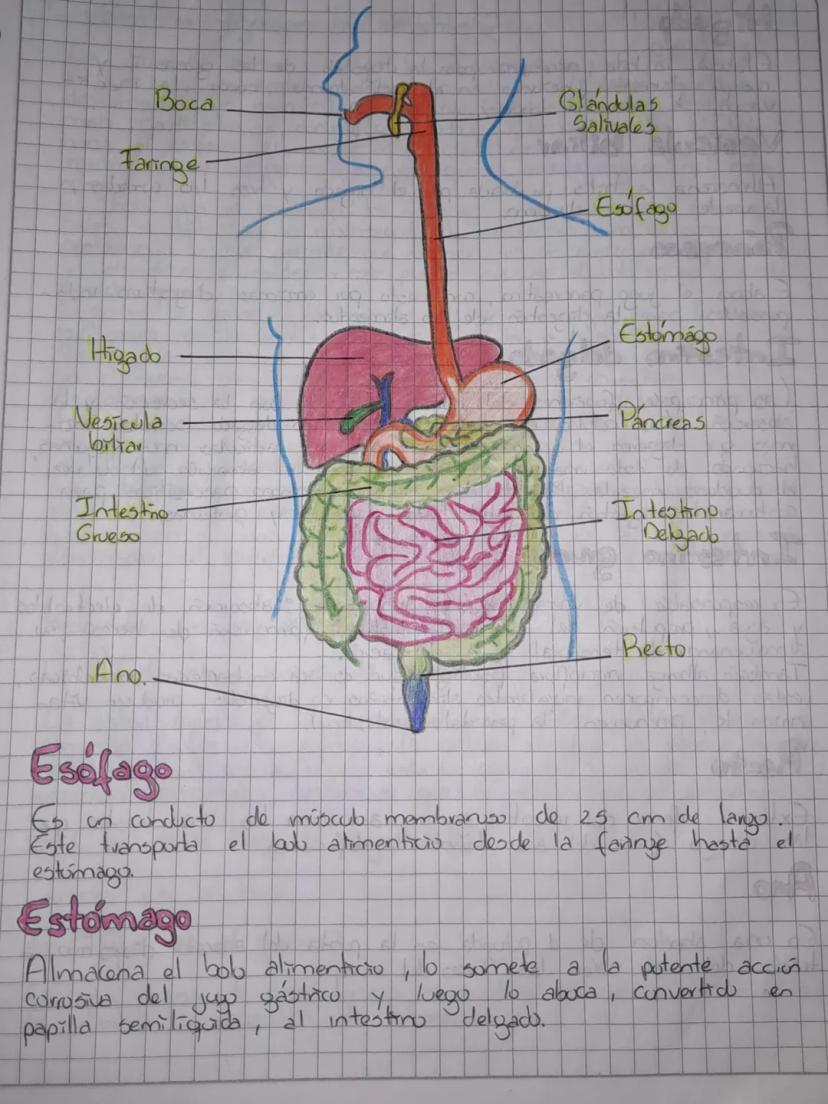 Boca
Glándulas
Salivales
Faringe
Esófago
Estómágo
Hígado
Vesícula
biliar
Páncreas
Intestino
Grueso
Intestino
Delgado
Recto
Ano.
Esófago
Es un conducto de músculo membranoso de 25 cm de largo.
Este transporta el bolo alimenticio desde la faringe hasta el
estómago.
Estómago
Almacena el bolo alimenticio, lo somete a la potente acción
corrosiva del jugo gástrico y luego lo aboca, convertido en
papilla semilíquida, al intestino delgado.